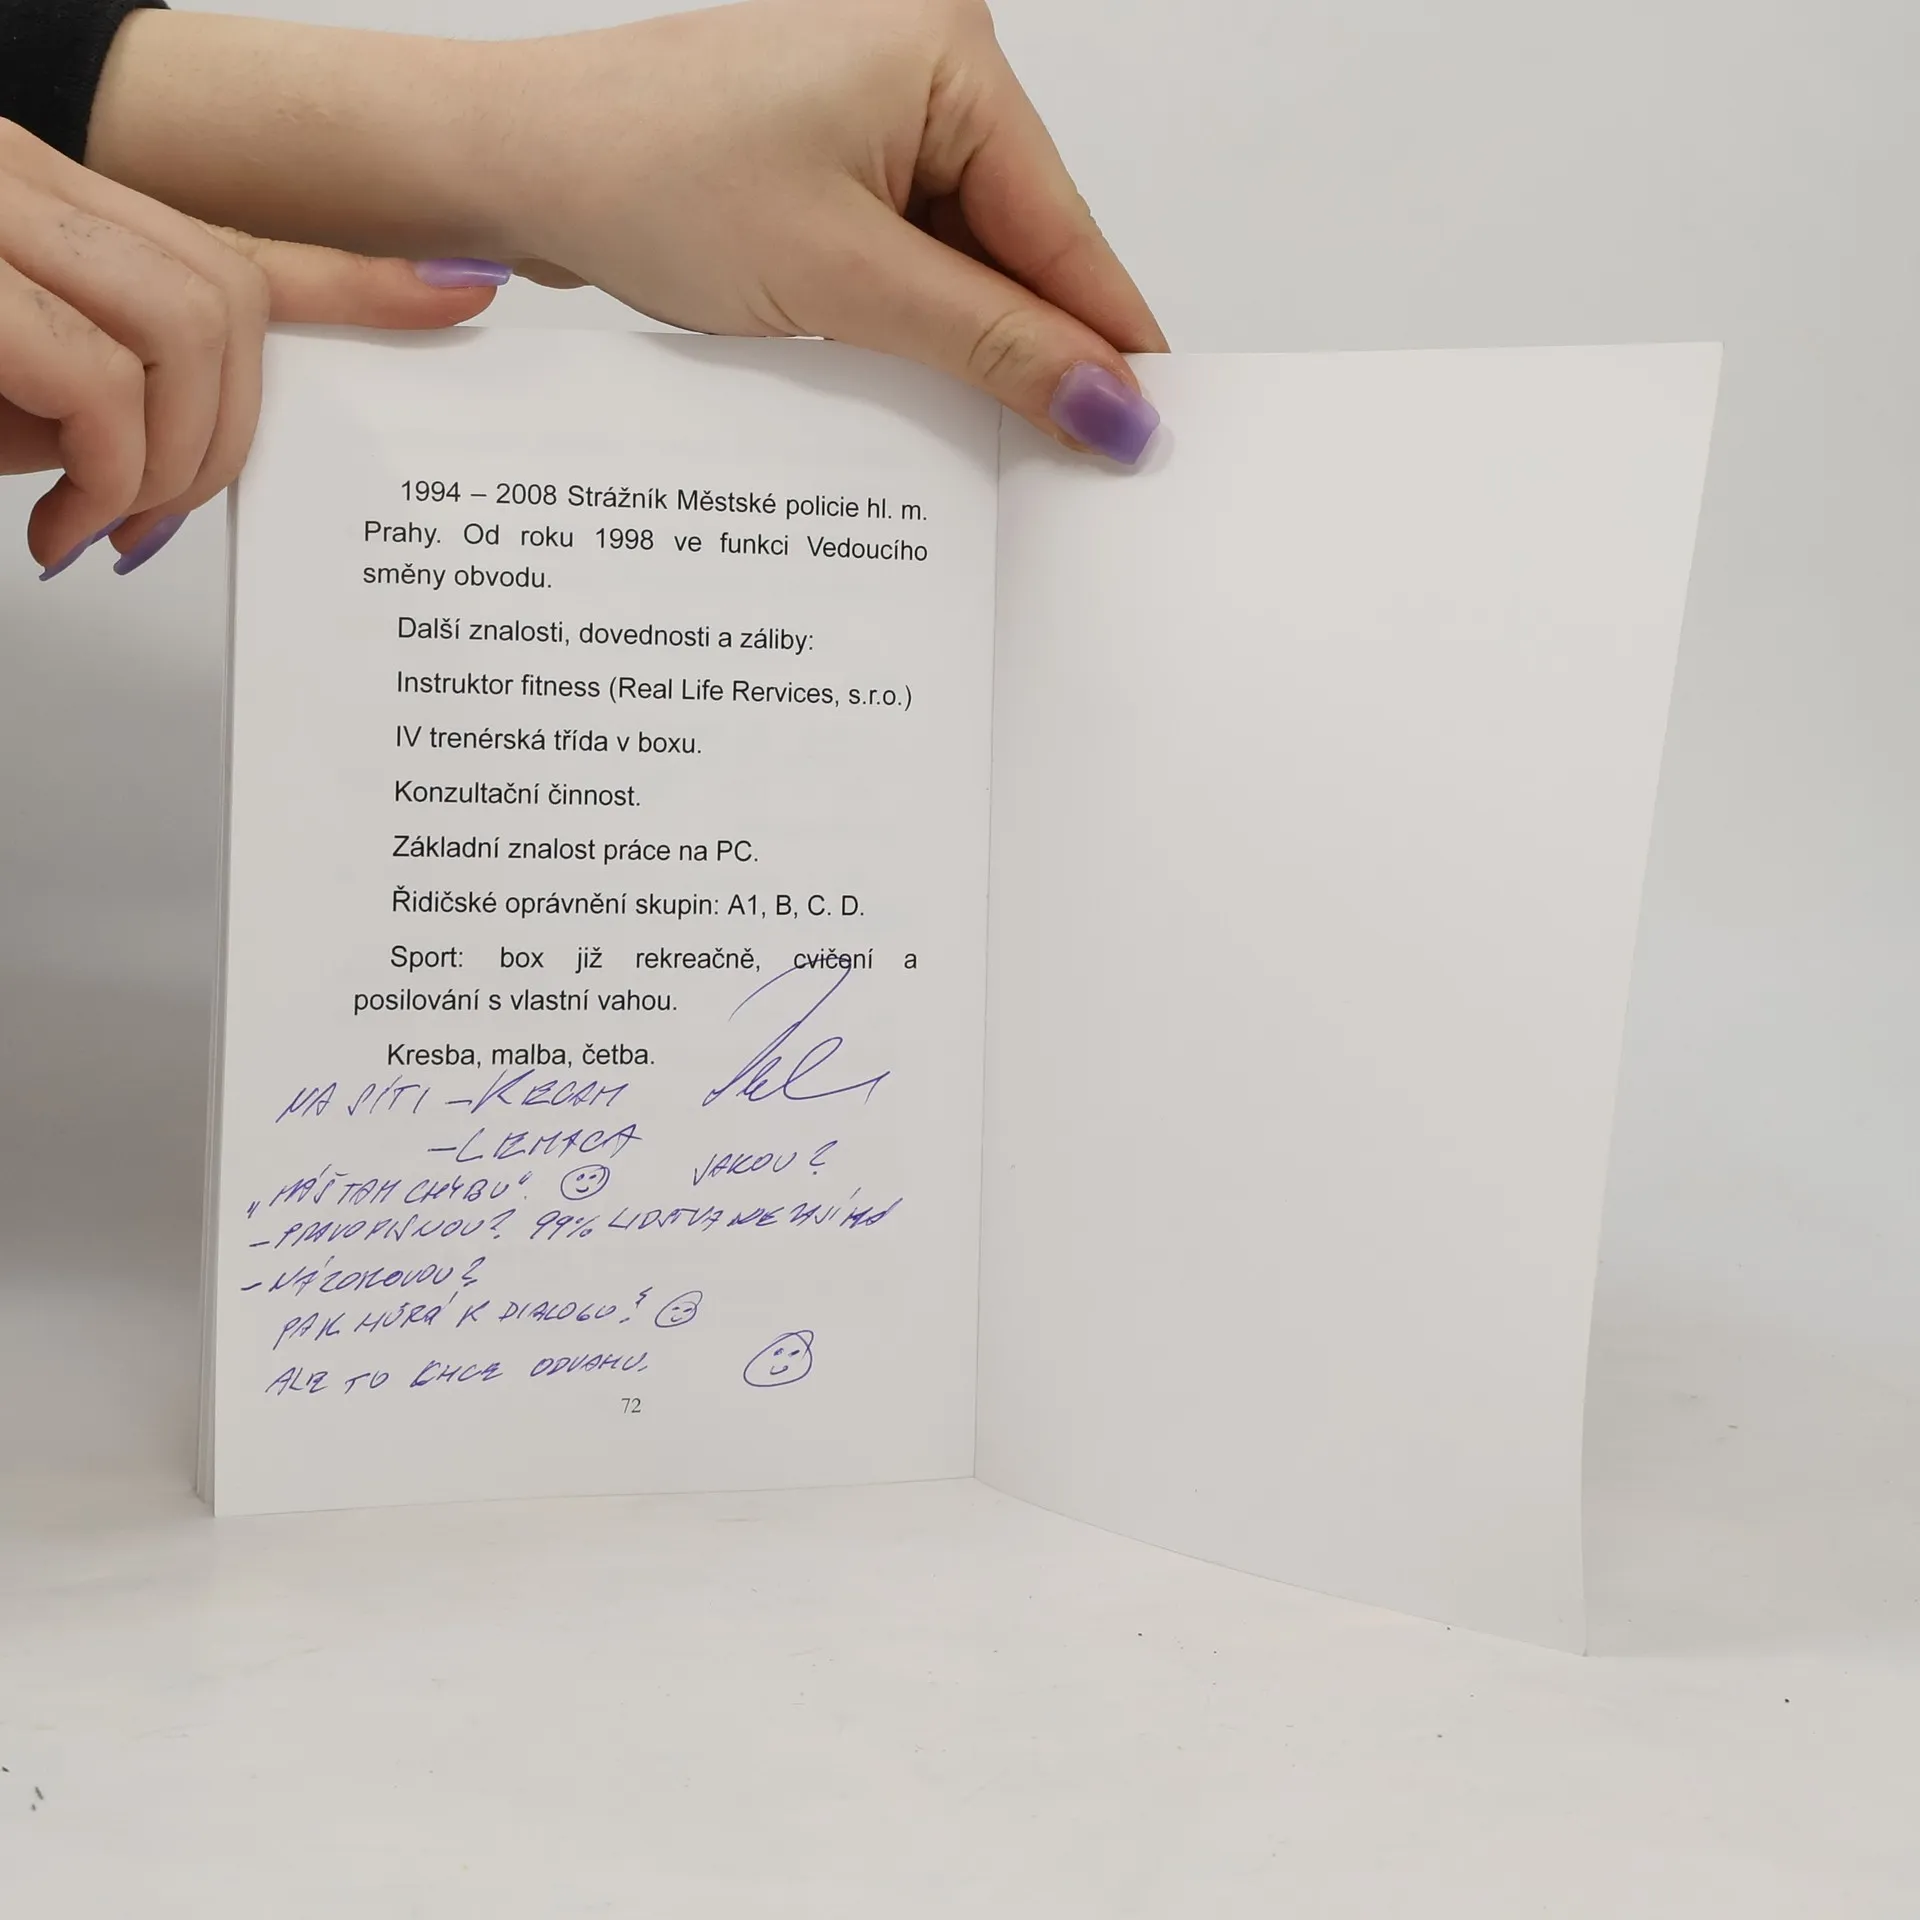 1994 – 2008 Strážník Městské policie hl. m.
Prahy. Od roku 1998 ve funkci Vedoucího
směny obvodu.
Další znalosti, dovednosti a záliby:
Instruktor fitness (Real Life Rervices, s.r.o.)
IV trenérská třída v boxu.
Konzultační činnost.
Základní znalost práce na PC.
Řidičské oprávnění skupin: A1, B, C. D.
Sport: box již rekreačně, cvičení a
posilování s vlastní vahou.
Kresba, malba, četba.
NA SÍTI –
„MÁŠ TAM CHYBU“. JAKOU?
– PRAVOPISNOU? 99% LIDSTVA NEZAJÍMÁ
– NÁZOROVOU?
PAK HŮRÁ K DIALOGU!
ALE TO CHCE ODVAHU.
72